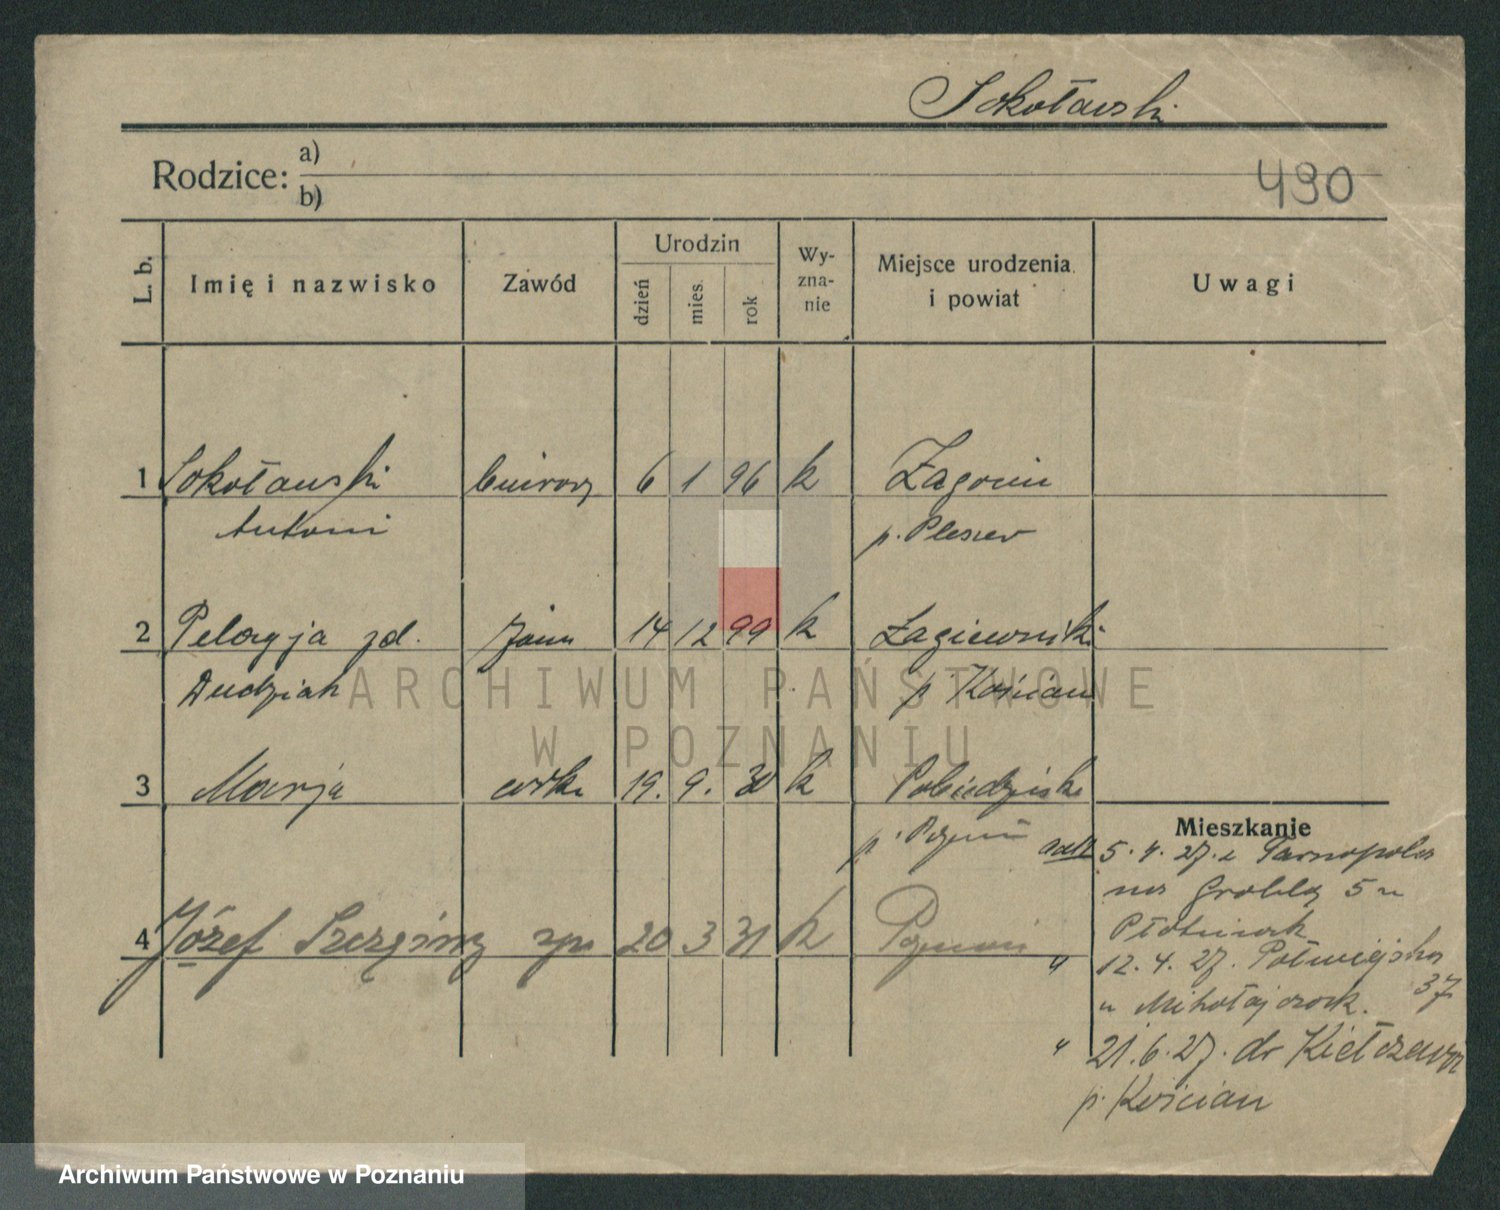 Sokołowski
Rodzice: a)
b)
490
L. b.
Imię i nazwisko
Zawód
Urodzin
dzień
mies.
rok
Wy-
zna-
nie
Miejsce urodzenia
i powiat
Uwagi
1 Sokołowski 6 1 96 k
Antoni p. Pleszew
2 Pelagja zd. żona 14 12 99 k Łagiewniki
Dudziak p. Kościan
3 Marja córka 19. 9. 30 k Pobiedziska
p. Poznań
Mieszkanie
5. 4. 27. z Tarnopola
na Groblę 5 u
4 Józef 20 3 31 k Poznań
12. 4. 27. Półwiejska
37
u Mikołajczak.
" 21. 6. 27. do Kiełczewa
p. Kościan
ARCHIWUM PAŃSTWOWE
W POZNANIU
Archiwum Państwowe w Poznaniu